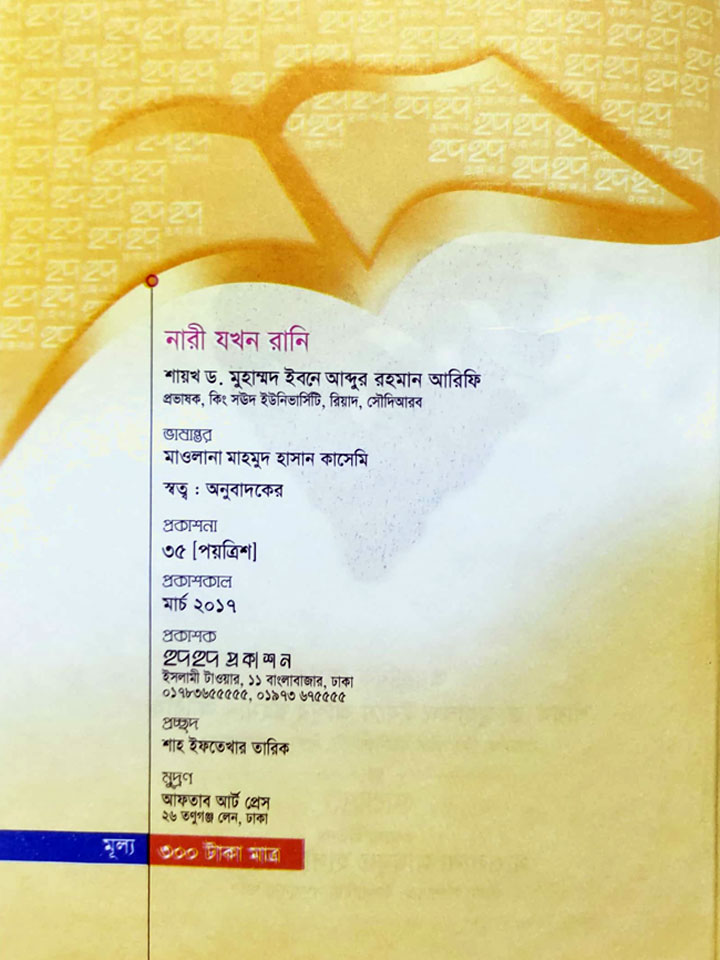 নারী যখন রানি
শায়খ ড. মুহাম্মদ ইবনে আব্দুর রহমান আরিফি
প্রভাষক, কিং সঊদ ইউনিভার্সিটি, রিয়াদ, সৌদিআরব
ভাষান্তর
মাওলানা মাহমুদ হাসান কাসেমি
স্বত্ব : অনুবাদকের
প্রকাশনা
৩৫ [পয়ত্রিশ]
প্রকাশকাল
মার্চ ২০১৭
প্রকাশক
হুদহুদ প্রকাশন
ইসলামী টাওয়ার, ১১ বাংলাবাজার, ঢাকা
০১৭৮৩৬৫৫৫৫৫, ০১৯৭৩ ৬৭৫৫৫৫
প্রচ্ছদ
শাহ ইফতেখার তারিক
মুদ্রণ
আফতাব আর্ট প্রেস
২৬ তণুগঞ্জ লেন, ঢাকা
মূল্য ৩০০ টাকা মাত্র